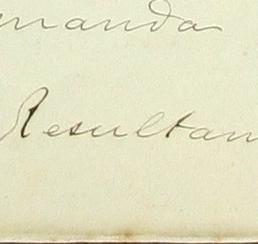 manda
Resultan